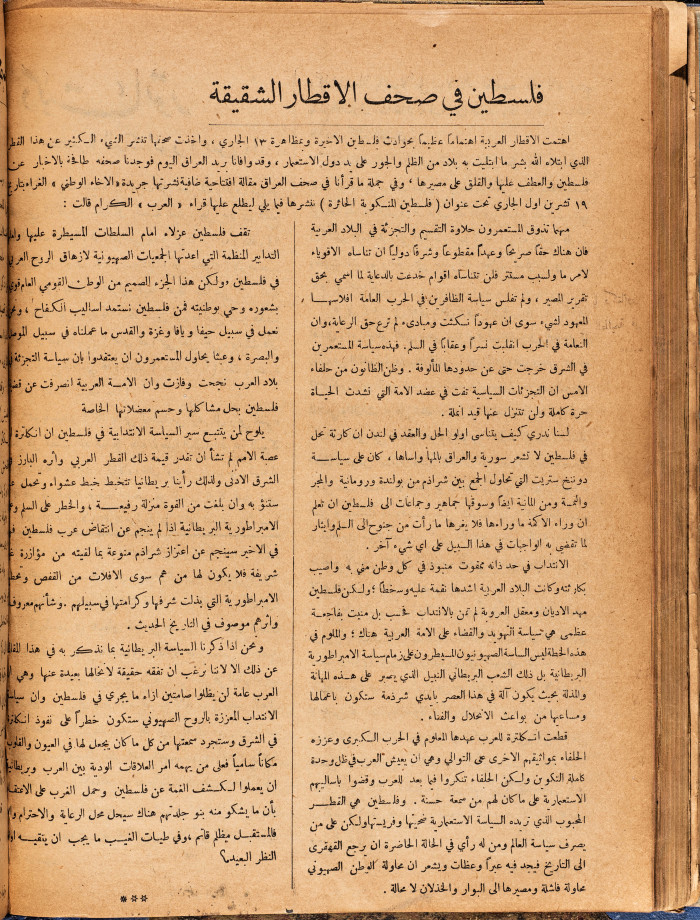 فلسطين في صحف الاقطار الشقيقة
اهتمت الاقطار العربية اهتماماً عظيماً بحوادث فلسطين الاخيرة ومظاهرة ١٣ الجاري ، واخذت صحفها تنشر الشيء الكثير عن هذا القطر
الذي ابتلاه الله بشر ما ابتليت به بلاد من الظلم والجور على يد دول الاستعمار ، وقد وافانا بريد العراق اليوم فوجدنا صحفه طافحة بالاخبار عن
فلسطين والعطف عليها والقلق على مصيرها ، وفي جملة ما قرأنا في صحف العراق مقالة افتتاحية ضافية نشرتها جريدة «الاخاء الوطني » الغراء بتاريخ
١٩ تشرين اول الجاري تحت عنوان ( فلسطين المنكوبة الحائرة ) ننشرها فيما يلي ليطلع عليها قراء « العرب » الكرام قالت :
مهما تذوق المستعمرون حلاوة التقسيم والتجزئة في البلاد العربية
فان هناك حقاً صريحاً وعهداً مقطوعاً وشرفاً دولياً ان تناساه الاقوياء
لامر ما ولسبب مستتر فلن تتناساه اقوام خدعت بالدعاية لما اسمي بحق
تقرير المصير ، ولم تفلس سياسة الظافرين في الحرب العامة افلاسها
المعهود لشيء سوى ان عهوداً نكثت ومبادىء لم ترع حق الرعاية، وان
النعامة في الحرب انقلبت نسراً وعقاباً في السلم. فهذه سياسة المستعمرين
في الشرق خرجت حتى عن حدودها المألوفة . وظن الظانون من حلفاء
الامس ان التجزئات السياسية تفت في عضد الامة التي نشدت الحياة
حرة كاملة ولن تتنزل عنها قيد انملة .
لسنا ندري كيف يتناسى اولو الحل والعقد في لندن ان كارثة تحل
في فلسطين لا تشعر سورية والعراق بالمها واساها ، كان على سياسة
دوننج ستريت التي تحاول الجمع بين شراذم من بولندة ورومانية والمجر
والنمسة ومن المانية ايضاً وسوقها جماهير وجماعات الى فلسطين ان تعلم
ان وراء الاكمة ما وراءها فلا يغرها ما رأت من جنوح الى السلم وايثار
لما تقضي به الواجبات في هذا السبيل على اي شيء آخر .
الانتداب في حد ذاته ممقوت منبوذ في كل وطن مني به واصيب
بكارثته وكانت البلاد العربية اشدها نقمة عليه وسخطاً ؛ ولكن فلسطين
مهد الاديان ومعقل العروبة لم تمن بالانتداب فحسب بل منيت بفاجعة
عظمى هي سياسة التهويد والقضاء على الامة العربية هناك ؛ والملوم في
هذه الخطة ليس الساسة الصهيونيون المسيطرون على زمام سياسة الامبراطورية
البريطانية بل ذلك الشعب البريطاني النبيل الذي يصبر على هذه المهانة
والمذلة بحيث يكون آلة في هذا العصر بايدي شرذمة ستكون باعمالها
ومساعيها من بواعث الانحلال والفناء .
قطعت انكلترة للعرب عهدها المعلوم في الحرب الكبرى وعززه
الحلفاء بمواثيقهم الاخرى على التوالي وهي ان يعيش العرب في ظل وحدة
كاملة التكوين ولكن الحلفاء تنكروا فيما بعد للعرب وقضوا باساليبهم
الاستعمارية على ما كان لهم من سمعة حسنة . وفلسطين هي القطر
المحبوب الذي تريده السياسة الاستعمارية ضحيتها وفريستها ولكن على من
يصرف سياسة العالم ومن له رأي في الحالة الحاضرة ان يرجع القهقرى
الى التاريخ فيجد فيه عبراً وعظات ويشعر ان محاولة الوطن الصهيوني
محاولة فاشلة ومصيرها الى البوار والخذلان لا محالة .
تقف فلسطين عزلاء امام السلطات المسيطرة عليها
التدابير المنظمة التي اعدتها الجمعيات الصهيونية لازهاق الروح
في فلسطين ولكن هذا الجزء الصميم من الوطن القومي العام
بشعوره وحي بوطنيته فمن فلسطين نستمد اساليب الكفاح ،
نعمل في سبيل حيفا ويافا وغزة والقدس ما عملناه في سبيل
والبصرة ، وعبثاً يحاول المستعمرون ان يعتقدوا بان سياسة التجزئة
بلاد العرب نجحت وفازت وان الامة العربية انصرفت عن
فلسطين بحل مشاكلها وحسم معضلاتها الخاصة
يلوح لمن يتتبع سير السياسة الانتدابية في فلسطين ان انكلترة
عصبة الامم لم تشأ ان تقدر قيمة ذلك القطر العربي واثره البارز
الشرق الادنى ولذلك رأينا بريطانيا تتخبط خبط عشواء وتحمل
ستنوؤ به وان بلغت من القوة منزلة رفيعة ، والخطر على السلم
الامبراطورية البريطانية اذا لم ينجم عن انتقاض عرب فلسطين
في الاخير سينجم عن اعتزاز شراذم متنوعة بما لقيته من مؤازرة
شريفة فلا يكون لها من هم سوى الافلات من القفص
الامبراطورية التي بذلت شرفها وكرامتها في سبيلهم . وشأنهم معروف
واثرهم موصوف في التاريخ الحديث .
ونحن اذا ذكرنا السياسة البريطانية بما نذكر به في هذا
عن ذلك الا لاننا نرغب ان تفقه حقيقة لا نخالها بعيدة عنها وهي
العرب عامة لن يظلوا صامتين ازاء ما يجري في فلسطين وان
الانتداب المعززة بالروح الصهيوني ستكون خطراً على نفوذ انكلترة
في الشرق وستجرد سمعتها من كل ما كان يجعل لها في العيون والقلوب
مكاناً سامياً فعلى من يهمه امر العلاقات الودية بين العرب
ان يعملوا لكشف الغمة عن فلسطين وحمل الغرب على
بأن ما يشكو منه بنو جلدتهم هناك سيحل محل الرعاية والاحترام
فالمستقبل مظلم قاتم ، وفي طيات الغيب ما يجب ان يتقيه
النظر البعيد؟
***